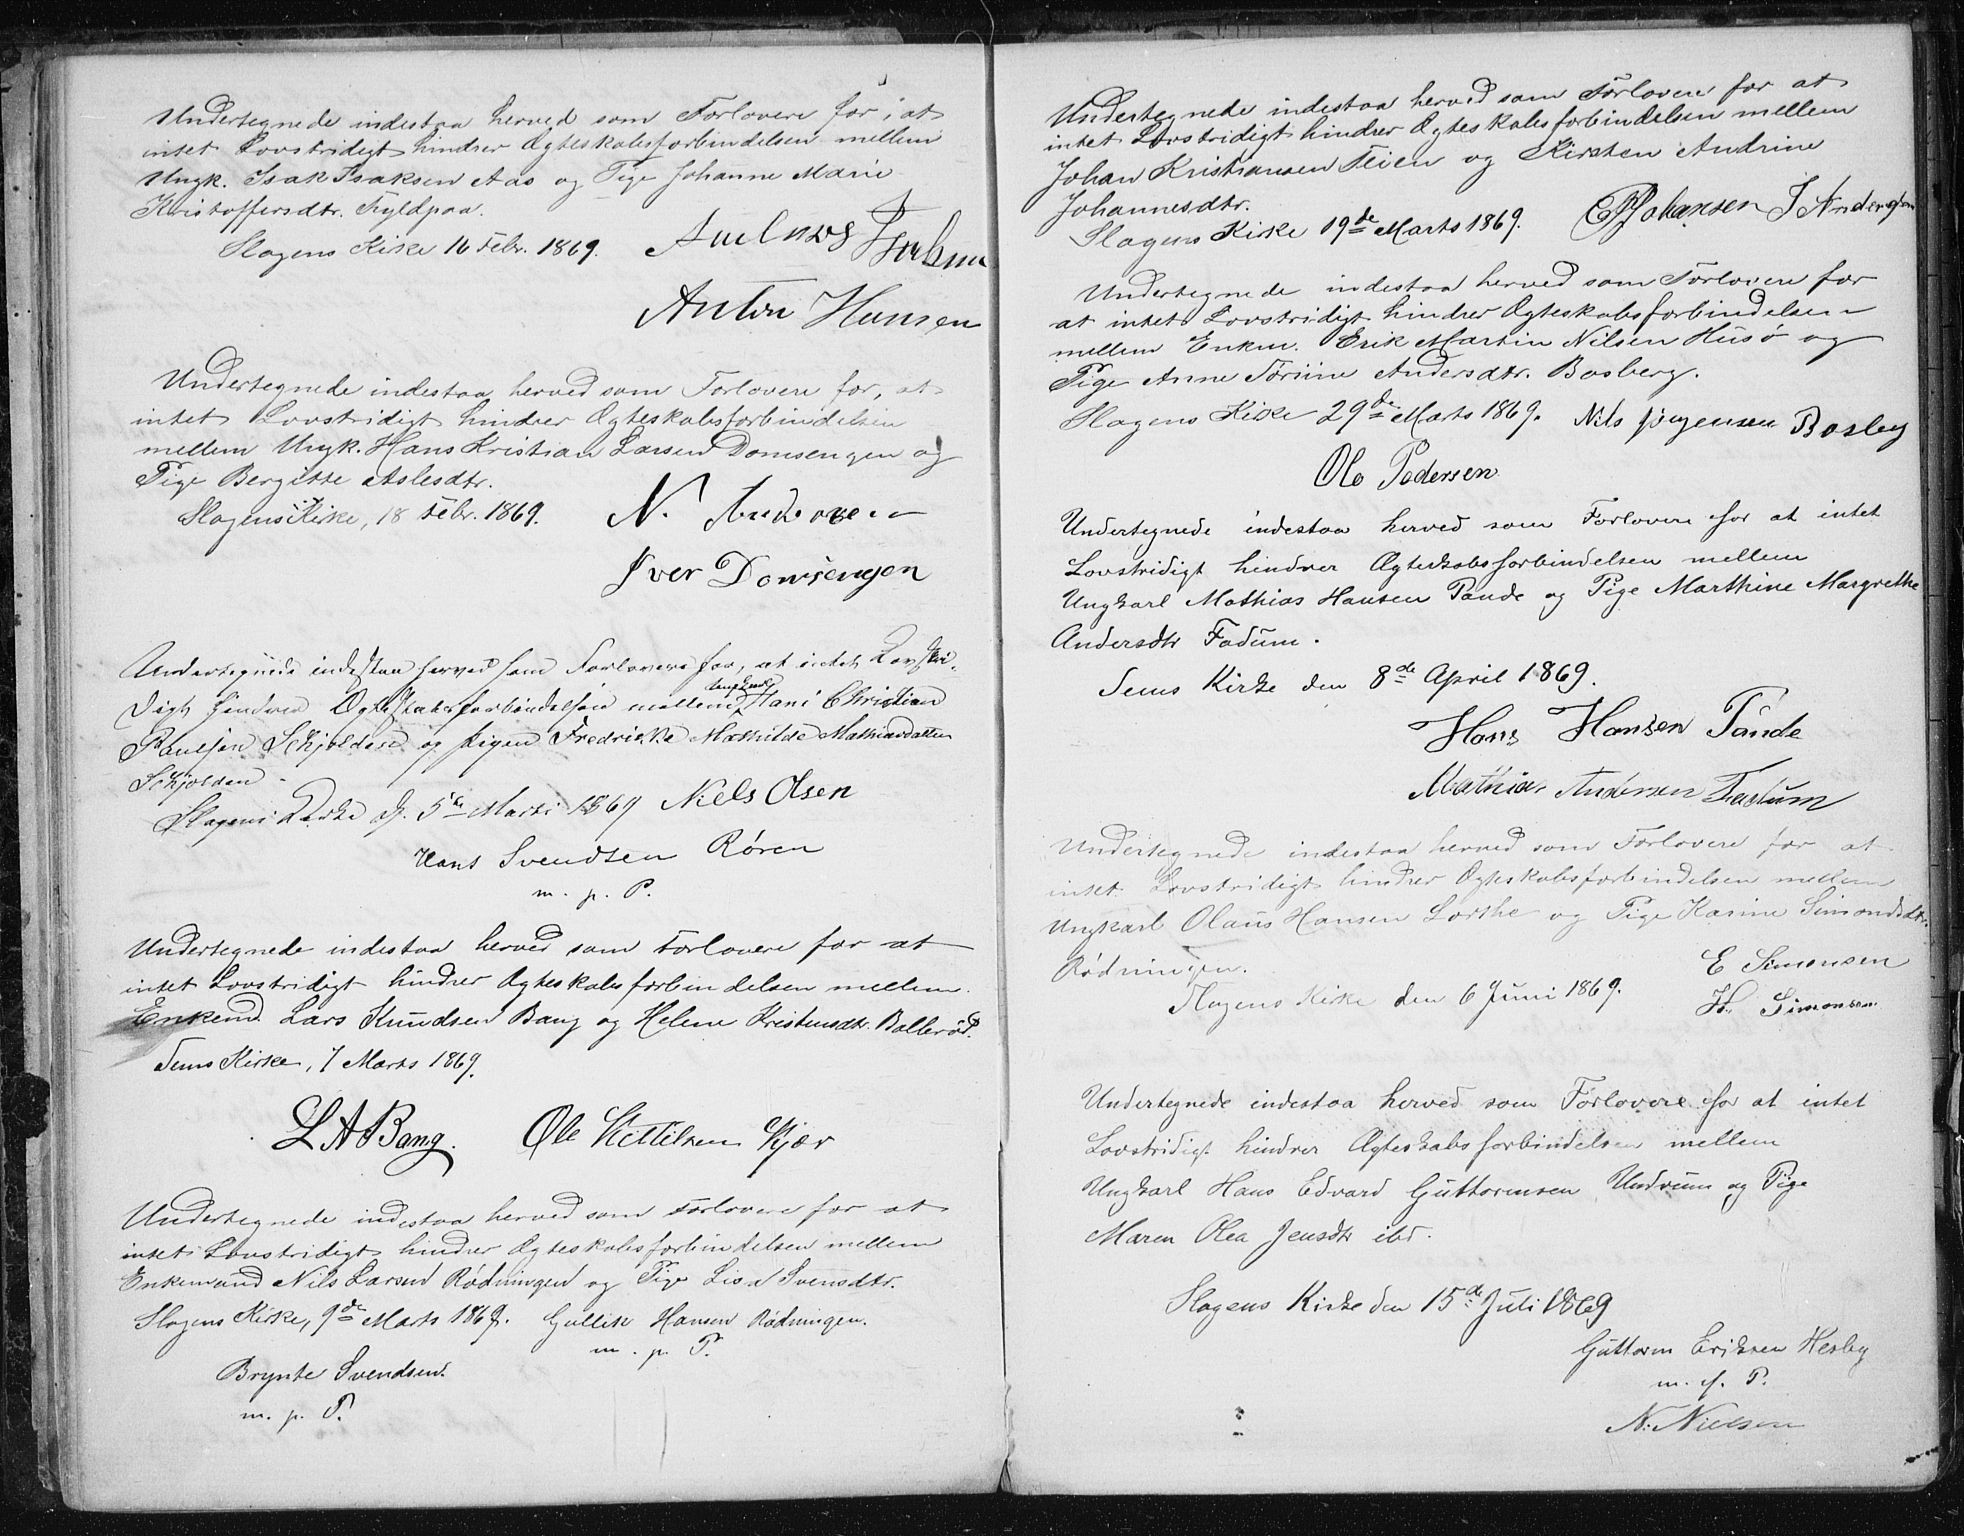 Undertegnede indestaa herved som Forlovere for, at
intet Lovstridigt hindrer Ægteskabsforbindelsen mellem
Ungk. Isak Isaksen Aas og Pige Johanne Marie
Kristoffersdtr. Fyldpaa.
Slagens Kirke 16 Febr. 1869.
Anton Hansen
Undertegnede indestaa herved som Forlovere for, at
intet Lovstridigt hindrer Ægteskabsforbindelsen
mellem Ungk. Hans Kristian Larsen Domsengen og
Pige Bergitte Aslesdtr.
Slagens Kirke, 18 Febr. 1869. N.
Iver Domsengen
Undertegnede indestaa herved som Forlovere for, at intet Lovstri-
digt hindrer Ægteskabsforbindelsen mellem Ungkarl Hans Christian
Paulsen Schjolden og Pigen Fredrikke Mathilde Mathiasdatter
Schjolden
Slagens Kirke d. 5te Marts 1869 Niels Olsen
Hans Svendsen Røren
m. p. P.
Undertegnede indestaa herved som Forlovere for at
intet Lovstridigt hindrer Ægteskabsforbindelsen mellem
Enkemd. Lars Knudsen Bang og Helene Kristensdtr. Bollerød.
Sems Kirke, 7 Marts 1869.
L A Bang. Ole Kittilsen Kjær
Undertegnede indestaa herved som Forlovere for at
intet Lovstridigt hindrer Ægteskabsforbindelsen mellem
Enkemand Nils Larsen Rødningen og Pige Lisa Svensdtr.
Slagens Kirke, 9de Marts 1869. Gullik Hansen Rødningen.
m. p. P.
Brynte Svendsen.
m. p. P.
Undertegnede indestaa herved som Forlovere for at
intet Lovstridigt hindrer Ægteskabsforbindelsen mellem
Johan Kristiansen Teien og Kirsten Andrine
Johannesdtr.
Slagens Kirke 19de Marts 1869. Johansen J Anderssen
Undertegnede indestaa herved som Forlovere for
at intet Lovstridigt hindrer Ægteskabsforbindelsen
mellem Enkm. Erik Martin Nilsen Husø og
Pige Anne Torine Andersdtr. Basberg.
Slagens Kirke 29de Marts 1869. Nils Jørgensen Basberg
Ole Pedersen
Undertegnede indestaa herved som Forlovere for at intet
Lovstridigt hindrer Ægteskabsforbindelsen mellem
Ungkarl Mathias Hansen Tande og Pige Marthine Margrethe
Andersdtr Fadum.
Sems Kirke den 8de April 1869.
Hans Hansen Tande
Mathias Andersen Fadum
Undertegnede indestaa herved som Forlovere for at
intet Lovstridigt hindrer Ægteskabsforbindelsen mellem
Ungkarl Olaus Hansen Lorthe og Pige Karine Simondsdtr.
Rødningen. E Simonsen
Slagens Kirke den 6 Juni 1869. H. Simonsen
Undertegnede indestaa herved som Forlovere for at intet
Lovstridigt hindrer Ægteskabsforbindelsen mellem
Ungkarl Hans Edvard Guttormsen Undrum og Pige
Maren Olea Jensdtr ibd.
Slagens Kirke den 15de Juli 1869
Guttorm Eriksen Hesby
m. p. P.
N. Nielsen